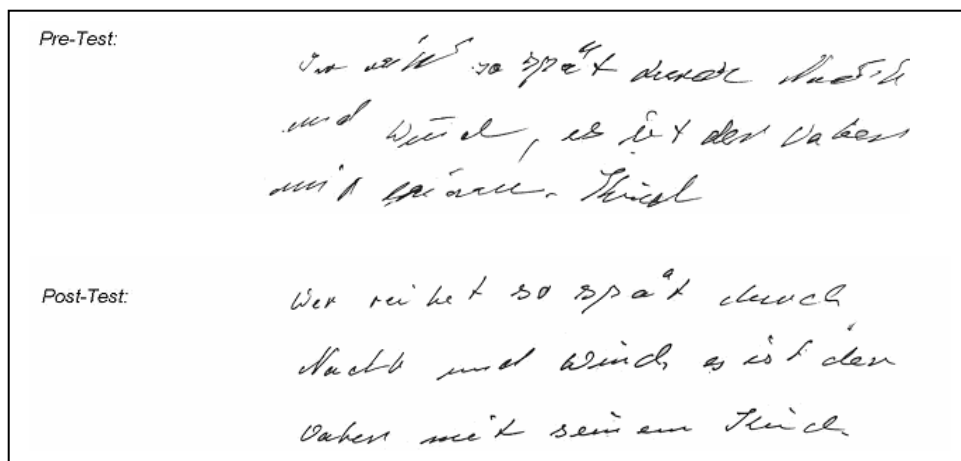 Pre-Test:
so spät durch Nacht
und Wind, es ist der Vater
mit Kind
Post-Test:
Wer reitet so spät durch
Nacht und Wind, es ist der
Vater mit seinem Kind.